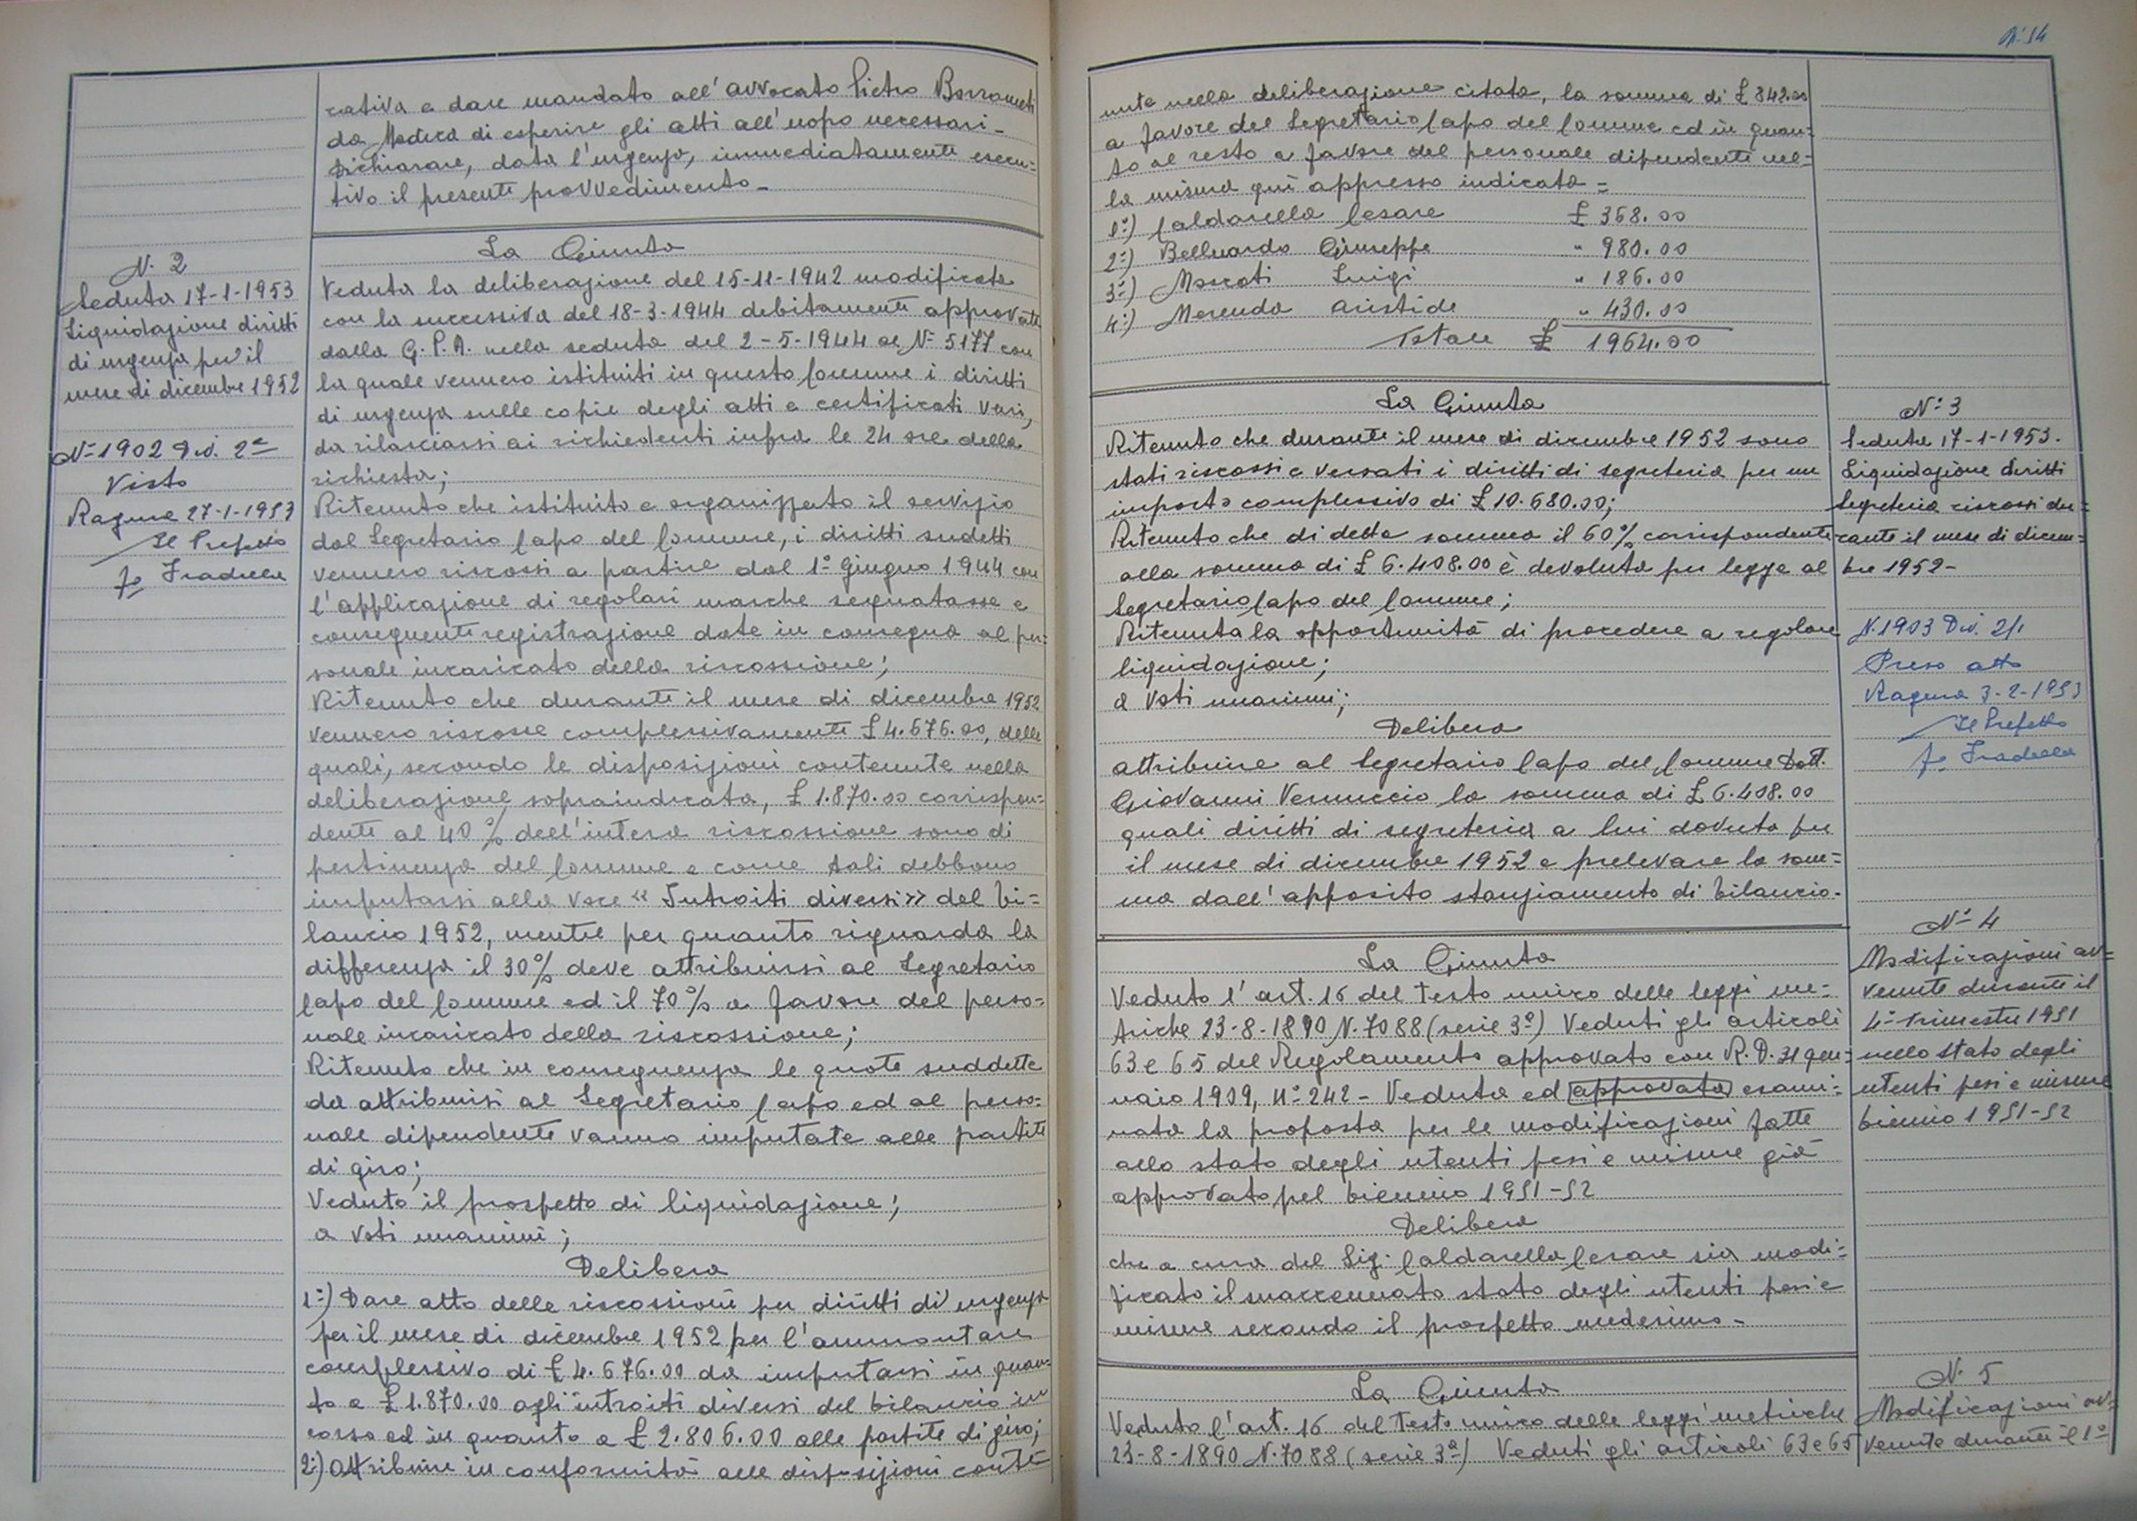 N. 14
cativa e dare mandato all'avvocato Pietro Borrometi
da Modica di esperire gli atti all'uopo necessari -
Dichiarare, data l'urgenza, immediatamente esecu=
tivo il presente provvedimento -
N. 2
Seduta 17-1-1953
Liquidazione diritti
di urgenza per il
mese di dicembre 1952
N. 1902 Div. 2ª
Visto
Ragusa 27-1-1953
Il Prefetto
La Giunta
Veduta la deliberazione del 15-11-1942 modificata
con la successiva del 18-3-1944 debitamente approvate
dalla G.P.A. nella seduta del 2-5-1944 al N. 5177 con
la quale vennero istituiti in questo Comune i diritti
di urgenza sulle copie degli atti e certificati vari,
da rilasciarsi ai richiedenti infra le 24 ore della
richiesta;
Ritenuto che istituito e organizzato il servizio
dal Segretario Capo del Comune, i diritti sudetti
vennero riscossi a partire dal 1° Giugno 1944 con
l'applicazione di regolari marche segnatasse e
conseguente registrazione date in consegna al per=
sonale incaricato della riscossione;
Ritenuto che durante il mese di dicembre 1952
vennero riscosse complessivamente £ 4.676.00, delle
quali, secondo le disposizioni contenute nella
deliberazione sopraindicata, £ 1.870.00 corrispon=
dente al 40% dell'intera riscossione sono di
pertinenza del Comune e come tali debbono
imputarsi alla voce « Introiti diversi » del bi=
lancio 1952, mentre per quanto riguarda la
differenza il 30% deve attribuirsi al Segretario
Capo del Comune ed il 70% a favore del perso=
nale incaricato della riscossione;
Ritenuto che in conseguenza le quote suddette
da attribuirsi al Segretario Capo ed al perso=
nale dipendente vanno imputate alle partite
di giro;
Veduto il prospetto di liquidazione;
a voti unanimi;
Delibera
1°) Dare atto delle riscossioni per diritti di urgenza
per il mese di dicembre 1952 per l'ammontare
complessivo di £ 4.676.00 da imputarsi in quan=
to a £ 1.870.00 agli introiti diversi del bilancio in
corso ed in quanto a £ 2.806.00 alle partite di giro;
2°) Attribuire in conformità alle disposizioni conte=
nute nella deliberazione citata, la somma di £ 842.00
a favore del Segretario Capo del Comune ed in quan=
to al resto a favore del personale dipendente nel=
la misura qui appresso indicata =
1°) Caldarella Cesare £ 368.00
2°) Belluardo Giuseppe " 980.00
3°) Moscati Luigi " 186.00
4°) Merenda Aristide " 430.00
Totale £ 1964.00
La Giunta
Ritenuto che durante il mese di dicembre 1952 sono
stati riscossi e versati i diritti di segreteria per un
importo complessivo di £ 10.680.00;
Ritenuto che di detta somma il 60% corrispondente
alla somma di £ 6.408.00 è devoluta per legge al
Segretario Capo del Comune;
Ritenuta la opportunità di procedere a regolare
liquidazione;
a voti unanimi;
Delibera
attribuire al Segretario Capo del Comune Dott.
Giovanni Vernuccio la somma di £ 6.408.00
quali diritti di segreteria a lui dovuta per
il mese di dicembre 1952 e prelevare la som=
ma dall'apposito stanziamento di bilancio.
N. 3
Seduta 17-1-1953.
Liquidazione diritti
Segreteria riscossi du=
rante il mese di dicem=
bre 1952 -
N. 1903 Div. 2/1
Preso atto
Ragusa 3-2-1953
Il Prefetto
La Giunta
Veduto l'art. 16 del testo unico delle leggi me=
triche 23-8-1890 N. 7088 (serie 3ª) Veduti gli articoli
63 e 65 del Regolamento approvato con R.D. 31 gen=
naio 1909, N° 242 - Veduta ed approvata esami=
nata la proposta per le modificazioni fatte
allo stato degli utenti pesi e misure già
approvato pel biennio 1951-52
Delibera
che a cura del Sig. Caldarella Cesare sia modi=
ficato il suaccennato stato degli utenti pesi e
misure secondo il prospetto medesimo -
N. 4
Modificazioni av=
venute durante il
4° Trimestre 1951
nello stato degli
utenti pesi e misure
biennio 1951-52
La Giunta
Veduto l'art. 16 del testo unico delle leggi metriche
23-8-1890 N. 7088 (serie 3ª) Veduti gli articoli 63 e 65
N. 5
Modificazioni av=
venute durante il 1°